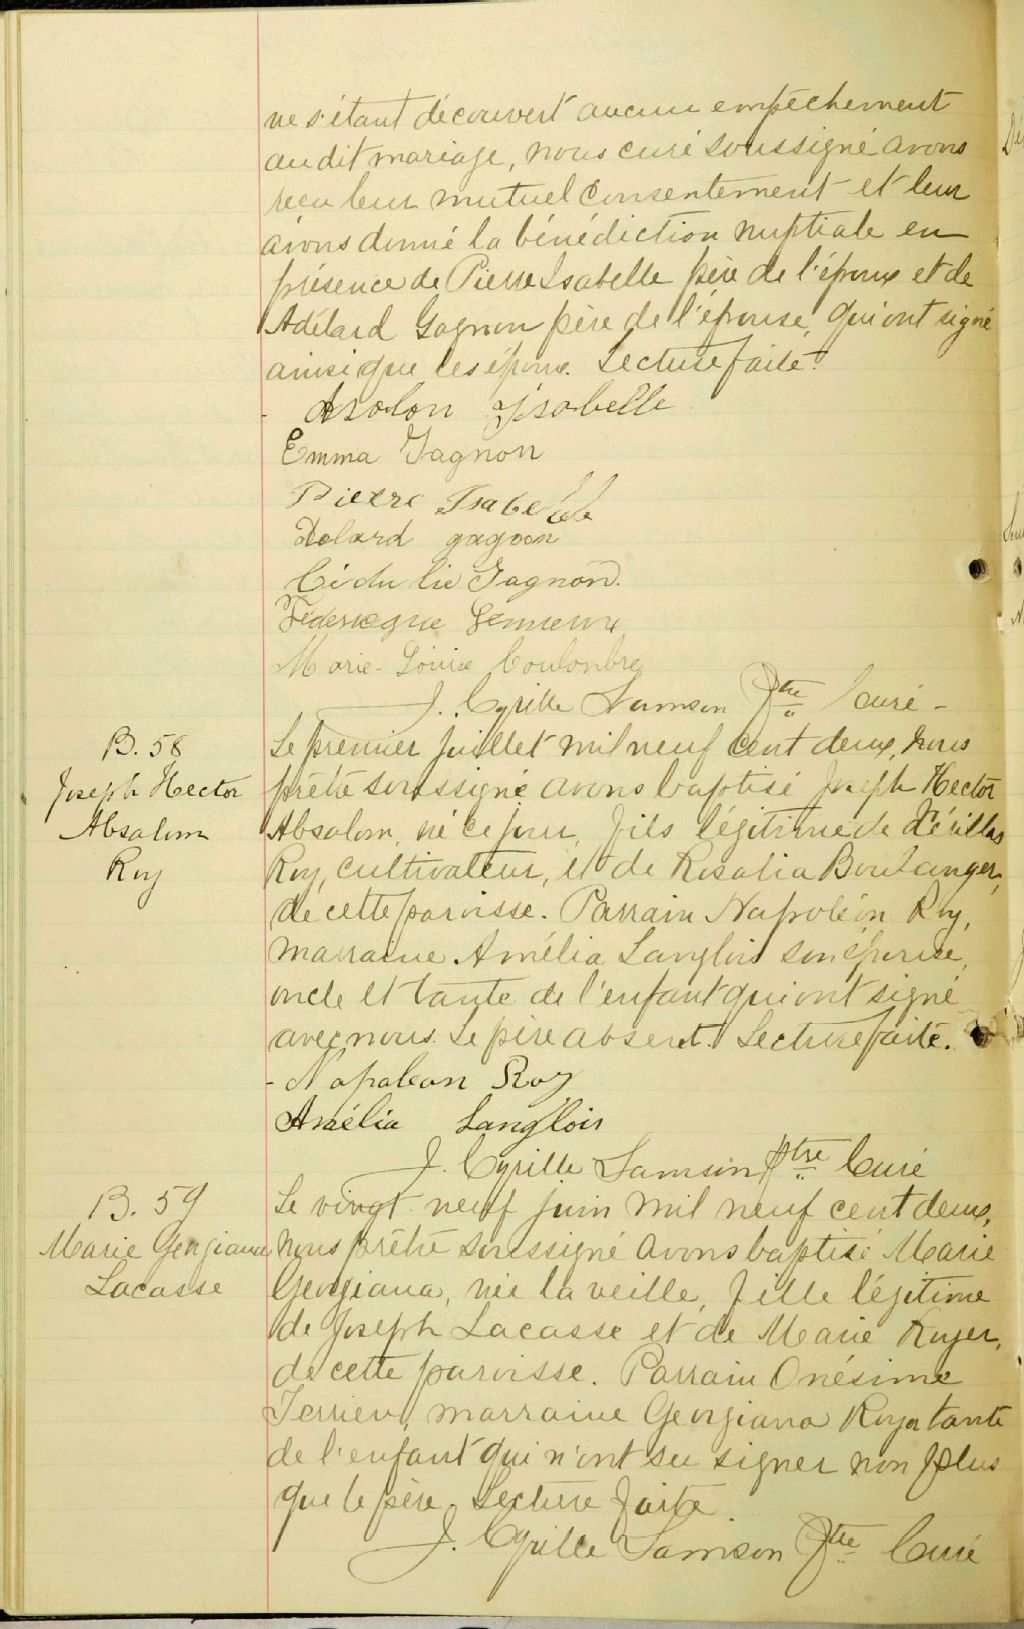 ne s'étant découvert aucun empêchement
au dit mariage, nous curé soussigné avons
reçu leur mutuel consentement et leur
avons donné la bénédiction nuptiale en
présence de Pierre Isabelle père de l'époux et de
Adélard Gagnon père de l'épouse, qui ont signé
ainsi que les époux. Lecture faite.
Absolon Isabelle
Emma Gagnon
Pierre Isabelle
Adelard gagnon
Cédulie Gagnon.
Marie-Louise Coulombre
J. Cyrille Samson Ptre Curé -
B. 58
Joseph Hector
Absalom
Roy
Le premier juillet mil neuf cent deux, nous
prêtre soussigné avons baptisé Joseph Hector
Absalom, né ce jour, fils légitime de
Roy, cultivateur, et de Rosalia Boulanger,
de cette paroisse. Parrain Napoléon Roy,
marraine Amélia Langlois son épouse,
oncle et tante de l'enfant qui ont signé
avec nous. Le père absent. Lecture faite.
- Napoleon Roy
Amélia Langlois
J. Cyrille Samson Ptre Curé
B. 59
Marie Georgiana
Lacasse
Le vingt neuf juin mil neuf cent deux,
nous prêtre soussigné avons baptisé Marie
Georgiana, née la veille, fille légitime
de Joseph Lacasse et de Marie Royer,
de cette paroisse. Parrain Onésime
Terrien, marraine Georgiana Royer tante
de l'enfant qui n'ont su signer non plus
que le père. Lecture faite.
J. Cyrille Samson Ptre Curé